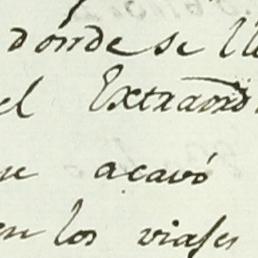 dónde se ll
el Extraord
ue acavó
en los viajes